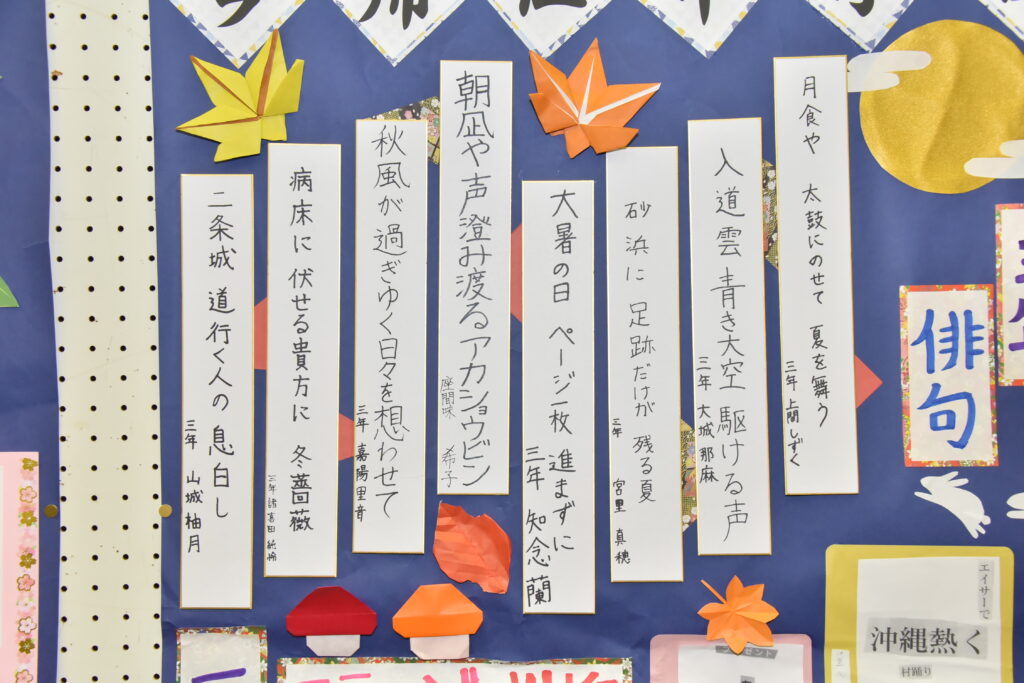 月食や 太鼓にのせて 夏を舞う
三年 上間しずく
入道雲 青き大空 駆ける声
三年 大城 那麻
砂浜に 足跡だけが 残る夏
三年 宮里 真穂
大暑の日 ページ一枚 進まずに
三年 知念 蘭
朝凪や 声澄み渡る アカショウビン
座間味 希子
秋風が 過ぎゆく日々を 想わせて
三年 嘉陽 里音
病床に 伏せる貴方に 冬薔薇
三年
二条城 道行く人の 息白し
三年 山城 柚月
俳句
エイサーで
沖縄熱く
村踊り